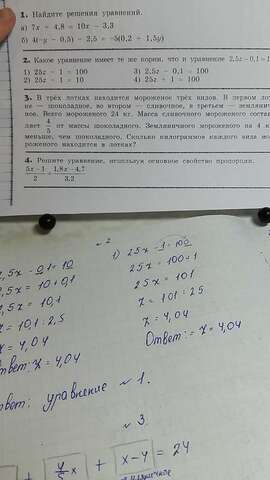 1. Найдите решения уравнений.
а) 7x − 4,8 = 10x − 3,3
б) 4(−y − 0,5) − 2,5 = −5(0,2 + 1,5y)
2. Какое уравнение имеет те же корни, что и уравнение 2,5x − 0,1 = 1
1) 25x − 1 = 100 3) 2,5x − 0,1 = 100
2) 25x − 1 = 10 4) 25x + 1 = 100
3. В трёх лотках находится мороженое трёх видов. В первом лот-
ке — шоколадное, во втором — сливочное, в третьем — землянич-
ное. Всего мороженого 24 кг. Масса сливочного мороженого состав-
ляет 4/5 от массы шоколадного. Земляничного мороженого на 4 кг
меньше, чем шоколадного. Сколько килограммов каждого вида мо-
роженого находится в лотках?
4. Решите уравнение, используя основное свойство пропорции.
5x−1/2 = 1,8x−4,7/3,2
№2
,5x − 0,1 = 10
,5x = 10 + 0,1
,5x = 10,1
x = 10,1 : 2,5
x = 4,04
твет: x = 4,04
1) 25x − 1 = 100
25x = 100+1
25x = 101
x = 101 : 25
x = 4,04
Ответ: x = 4,04
твет: уравнение №1.
№3.
+ 4/5 x + x − 4 = 24